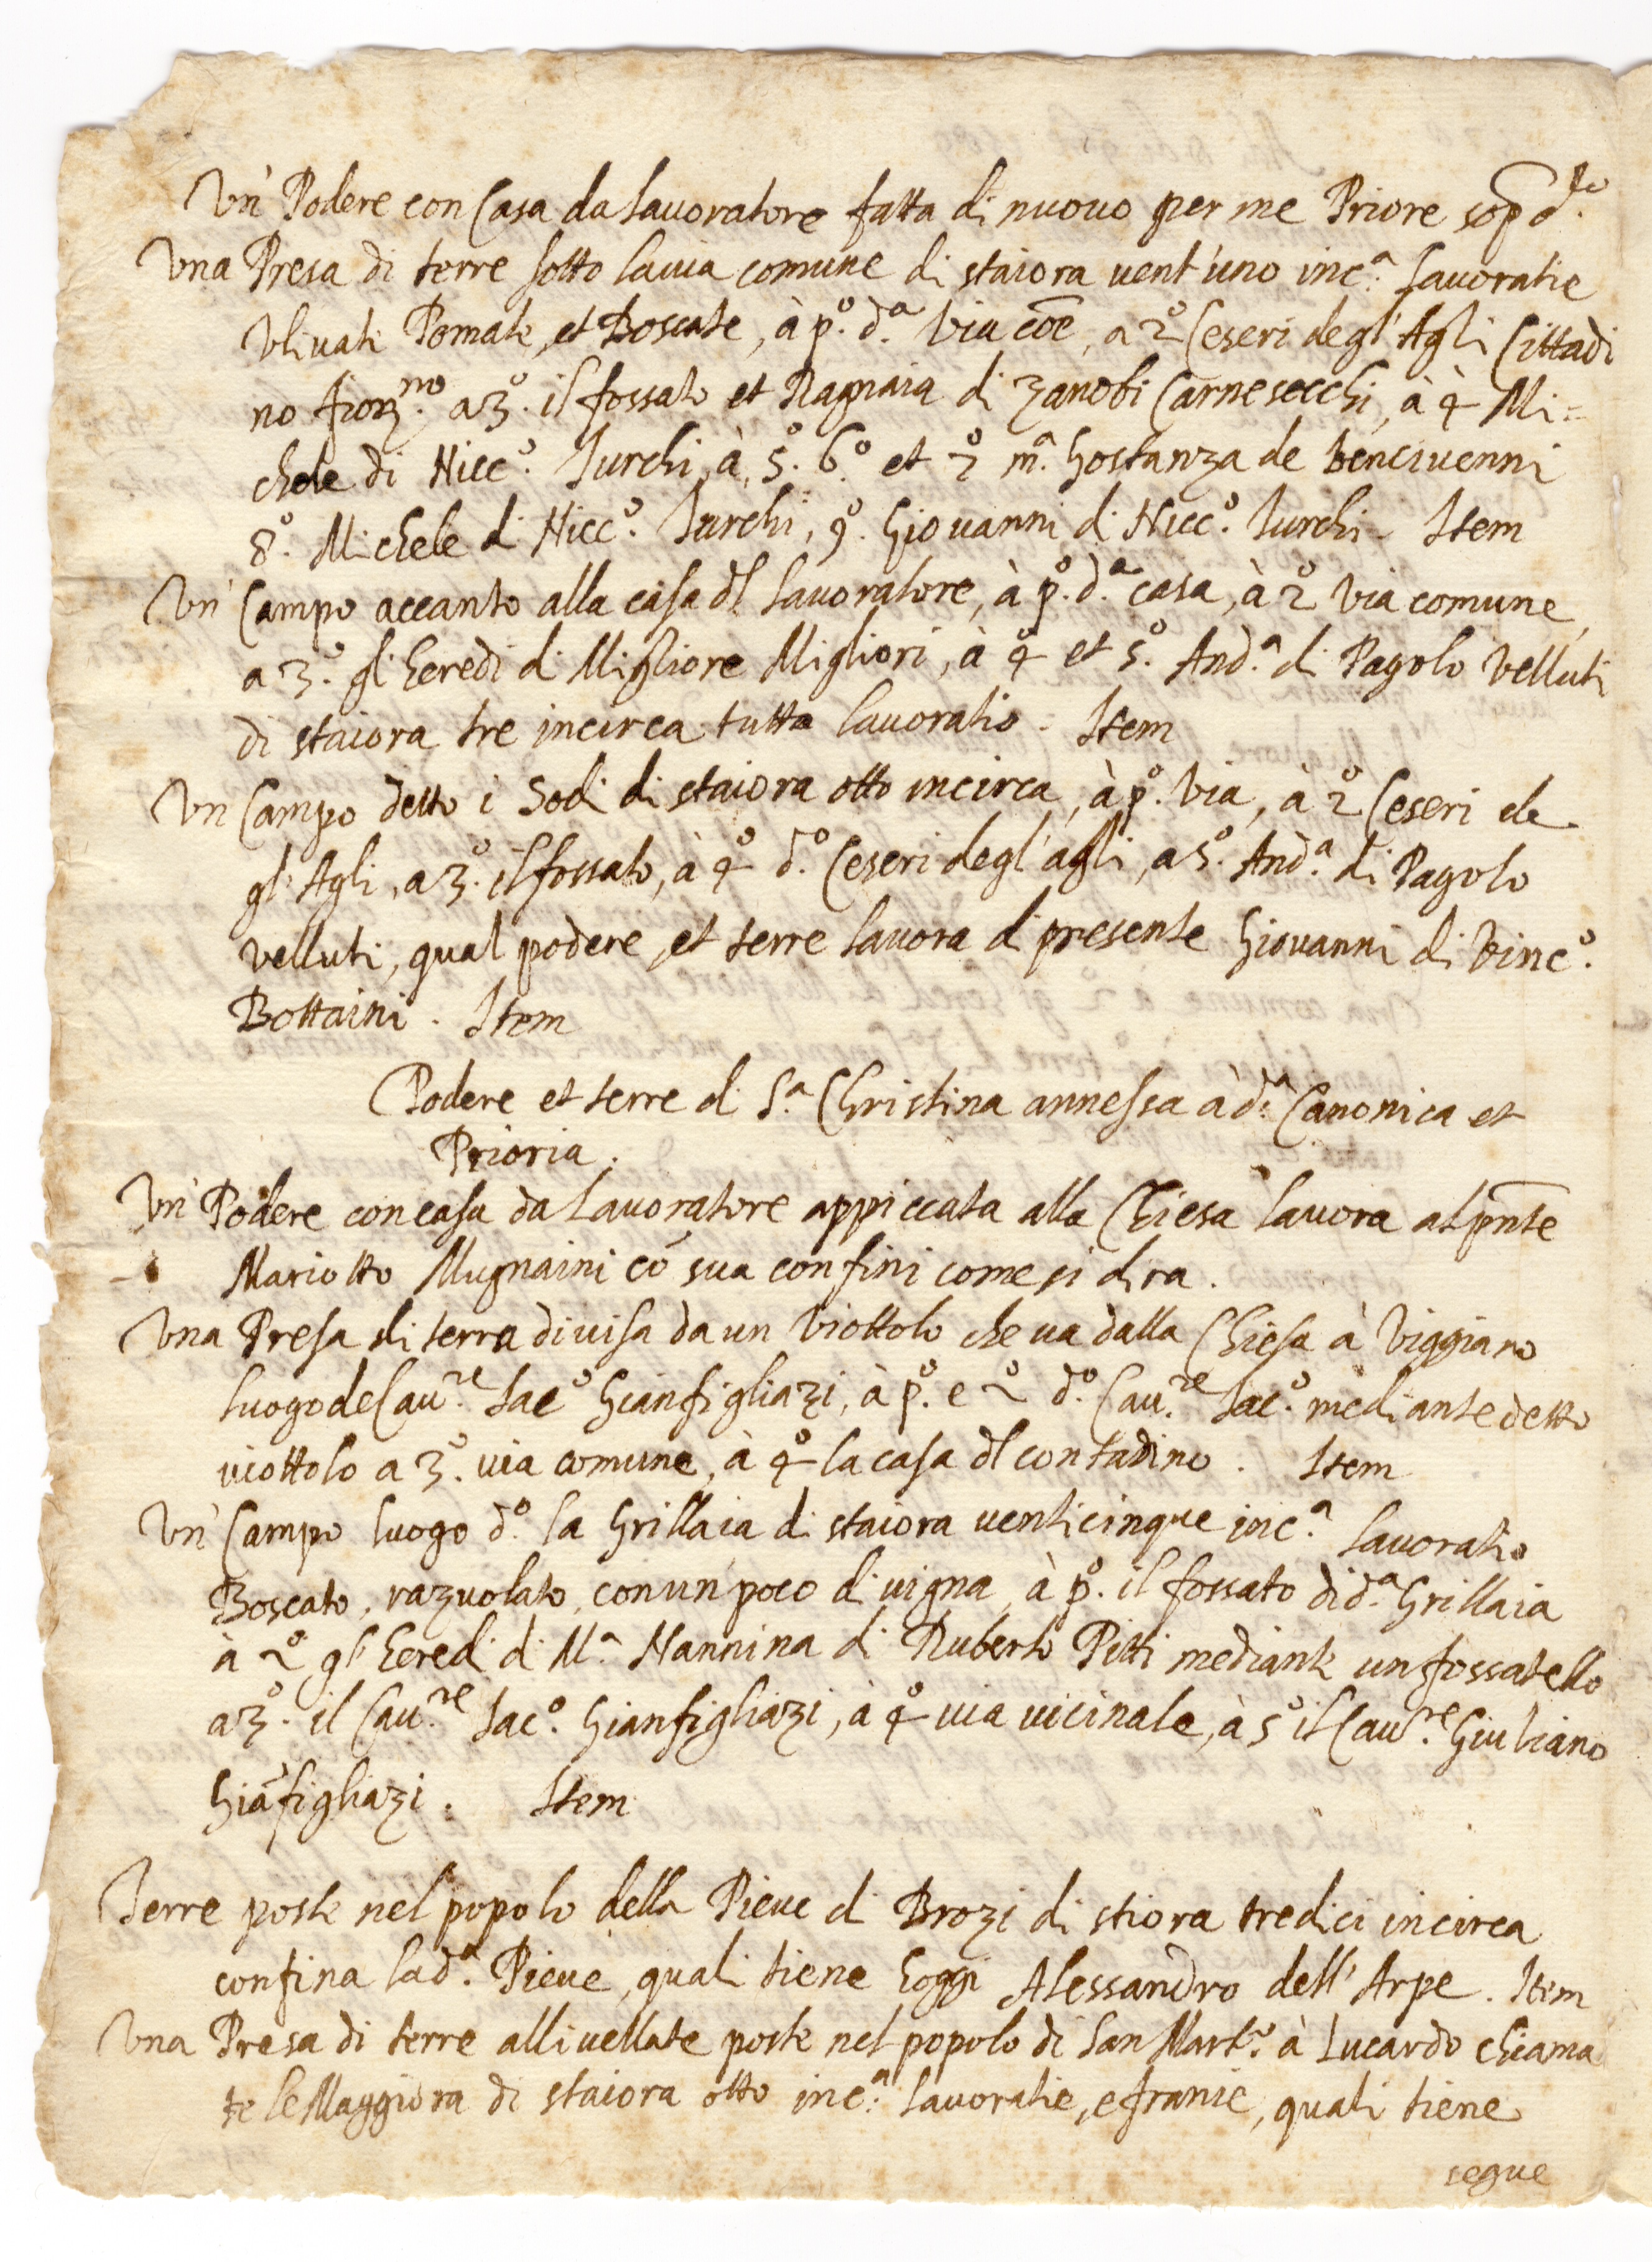 Un' Podere con Casa da lauoratore fatta di nuouo per me Priore sop.to
Una Presa di terre sotto la uia comune di staiora uent'uno inc.a lauoratie
Vliuati Pomate, et Boscate, à p.o d.a Via cõe, a 2o Ceseri degl'Agli Cittadi
no fior.no a 3.o il fossato et Ragnaia di Zanobi Carnesecchi, à 4o Mi=
chele di Nicc.o Turchi, à 5.o 6.o et 7o m.a Hostanza de benciuenni
8.o Michele di Nicc.o Turchi, 9.o Giouanni di Nicc.o Turchi - Item
Un' Campo accanto alla casa dl lauoratore, à p.o d.a casa, à 2o Via comune,
a 3.o gl'heredi di Migliore Migliori, à 4o et 5.o And.a di Pagolo Velluti
di staiora tre incirca tutta lauoratio - Item
Un Campo detto i Sodi di staiora otto incirca, à p.o Via, à 2o Ceseri de
gl'Agli, a 3.o il fossato, à 4o d.o Ceseri degl'agli, a 5.o And.a di Pagolo
Velluti, qual podere, et terre lauora di presente Giouanni di Vinc.o
Bottaini . Item
Podere et terre di S.a Christina annessa à d.a Canonica et
Prioria .
Un' Podere con casa da lauoratore appiccata alla Chiesa lauora al pñte
Mariotto Mugnaini cõ sua confini come si dira .
Una Presa di terra diuisa da un Viottolo che ua dalla Chiesa à Viggiano
luogo de Cau.re Iac.o Gianfigliazi, à p.o e 2o d.o Cau.re Iac.o mediante detto
uiottolo a 3.o uia comune, à 4o la casa dl contadino . Item
Un' Campo luogo d.o la Grillaia di staiora uenticinque inc.a lauoratio
Boscato, razuolato, con un' poco di uigna, à p.o il fossato di d.a Grillaia
à 2o gl'heredi di M.a Nannina di Ruberto Pitti mediante un fossatello
a 3.o il Cau.re Iac.o Gianfigliazi, à 4o uia uicinale, à 5o il Cau.re Giuliano
Giãfigliazi . Item
Terre poste nel popolo della Pieue di Brozi di stiora tredici incirca
confina la d.a Pieue, quali tiene hoggi Alessandro dell'Arpe . Item
Una Presa di terre alliuellate poste nel popolo di San Mart.o à Lucardo chiama
te le Maggiora di staiora otto inc.a lauoratie, e franie, quali tiene
segue